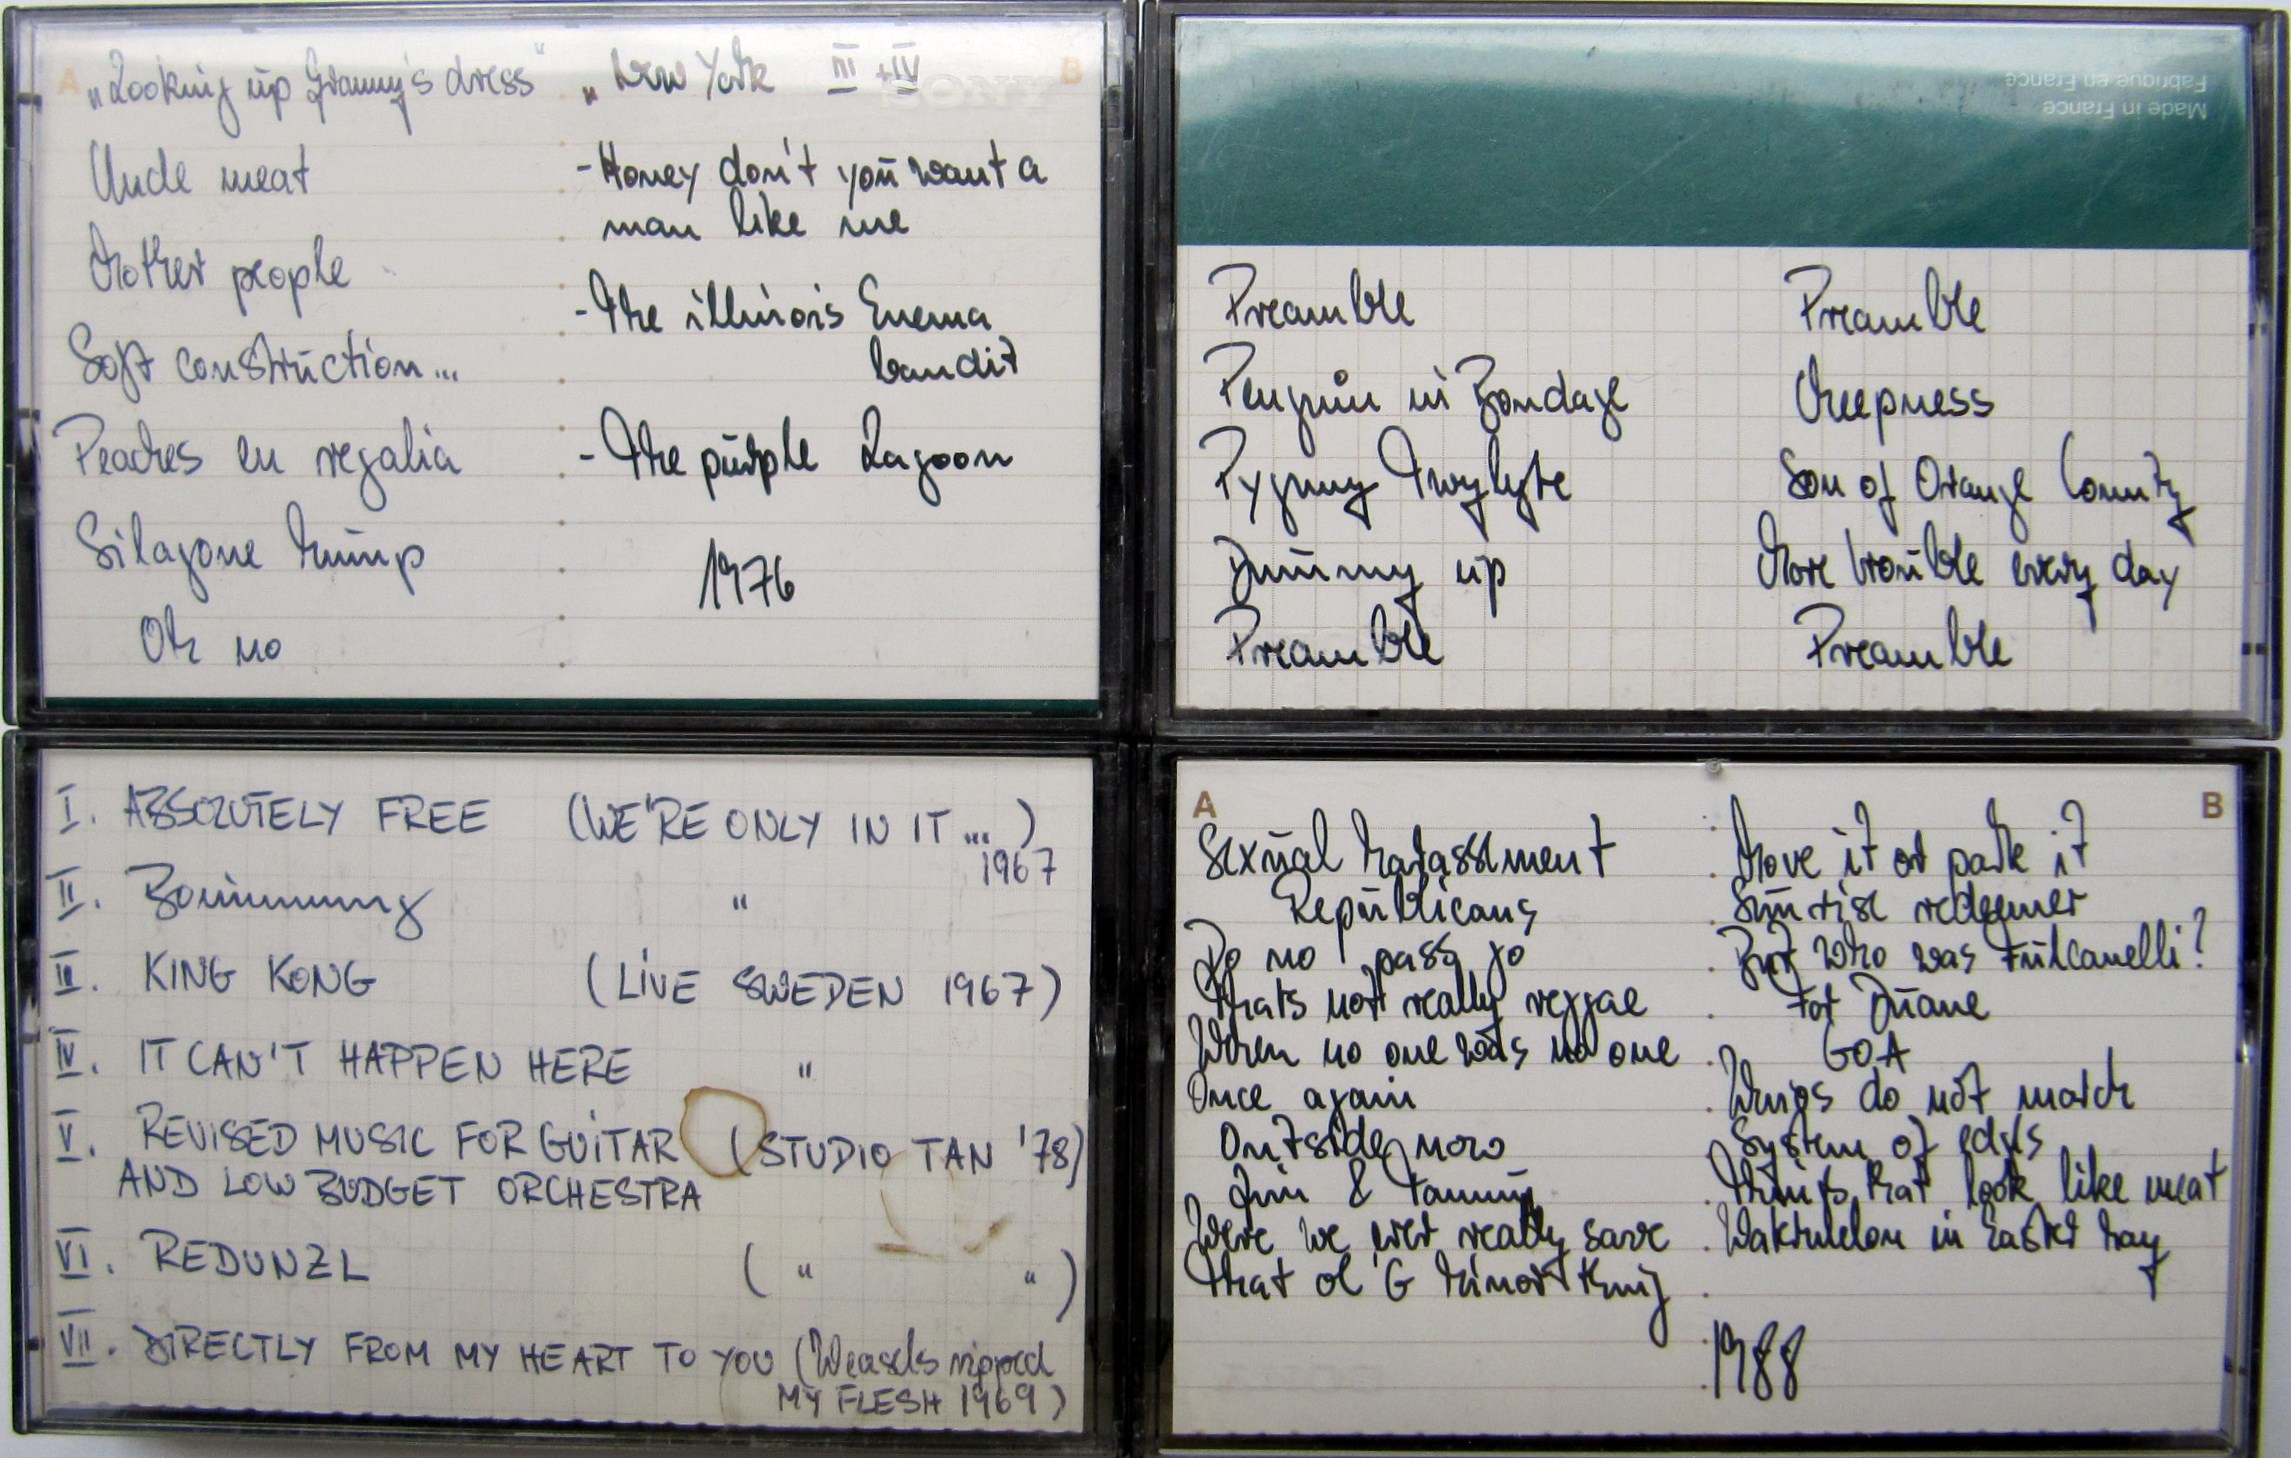 A
„Looking up Granny's dress"
Uncle meat
Mother people
Soft construction...
Peaches en regalia
Gilagone hump
Oh no
„ New York III + IV
B
SONY
- Honey don't you want a
man like me
- The illinois Enema
bandit
- The purple Lagoon
1976
Made in France
Fabriqué en France
Preamble
Penguin in Bondage
Pygmy Twylyte
Dummy up
Preamble
Preamble
Cheepness
Son of Orange County
More trouble every day
Preamble
I. ABSOLUTELY FREE (WE'RE ONLY IN IT ... )
1967
II. "
III. KING KONG (LIVE SWEDEN 1967)
IV. IT CAN'T HAPPEN HERE "
V. REVISED MUSIC FOR GUITAR (STUDIO TAN '78)
AND LOW BUDGET ORCHESTRA
VI. REDUNZL ( " " )
VII. DIRECTLY FROM MY HEART TO YOU (Weasels ripped
MY FLESH 1969)
A
Sexual harassement
Republicans
Do no pass go
Thats not really reggae
When no one was no one
Once again
Outside now
Jim & Tammy
Were we ever really save
That ol' G Minor thing
B
Move it or park it
Sunrise redeemer
But who was Fulcanelli?
For Duane
GOA
Wings do not match
System of edges
Things that look like meat
Watermelon in Easter hay
1988